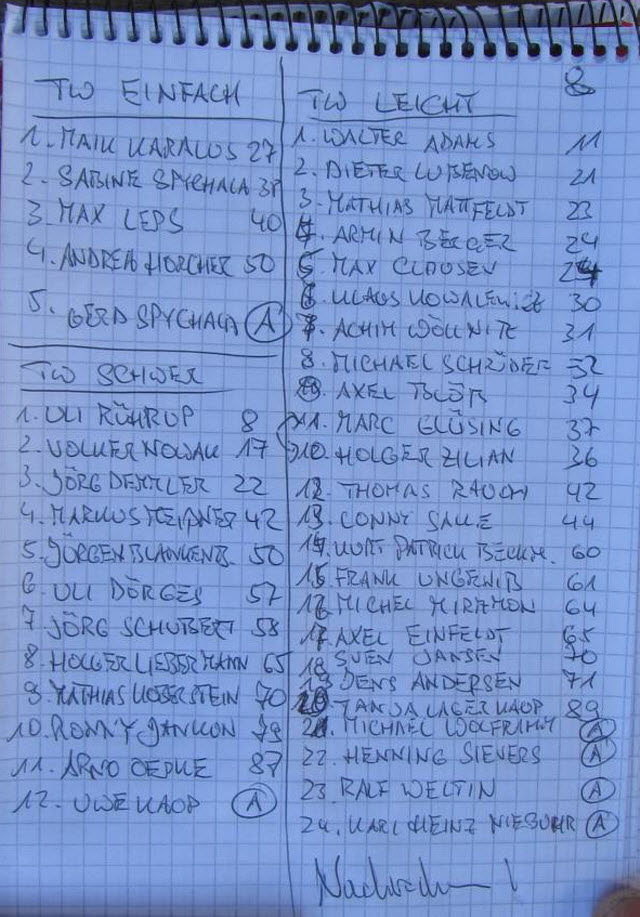 TW EINFACH
1. MAIK KARALUS 27
2. SABINE SPYCHALA 38
3. MAX LEPS 40
4. ANDREAS HORCHER 50
5. GERD SPYCHALA A
TW SCHWER
1. ULI RÜHRUP 8
2. VOLKER NOWAK 17
3. JÖRG 22
4. MARKUS MEIßNER 42
5. JÖRGEN BLANKENB. 50
6. ULI DÖRGES 57
7. JÖRG SCHUBERT 58
8. HOLGER LIEBERMANN 65
9. MATHIAS KOBERSTEIN 70
10. RONNY JANKON 79
11. ARNO OEPKE 87
12. UWE KAOP A
8
TW LEICHT
1. WALTER ADAMS 11
2. DIETER LÜBENOW 21
3. MATHIAS MATTFELDT 23
4. ARMIN BERGER 24
5. MAX CLAUSEN 24
6. KLAUS KOWALEWICZ 30
7. ACHIM WÖLLNITZ 31
8. MICHAEL SCHRÖDER 32
AXEL 34
11. MARC GLÜSING 37
10. HOLGER ZILIAN 36
12. THOMAS RAUCH 42
13. CONNY SALLE 44
14. KURT PATRICK BECKM. 60
15. FRANK UNGEWIß 61
16. MICHEL MIRAMON 64
17. AXEL EINFELDT 65
18. SVEN JANSEN 70
19. JENS ANDERSEN 71
20. TANJA LAGERKAOP 89
21. MICHAEL WOLFRAMM A
22. HENNING SIEVERS A
23. RALF WELTIN A
24. KARLHEINZ NIEBUHR A